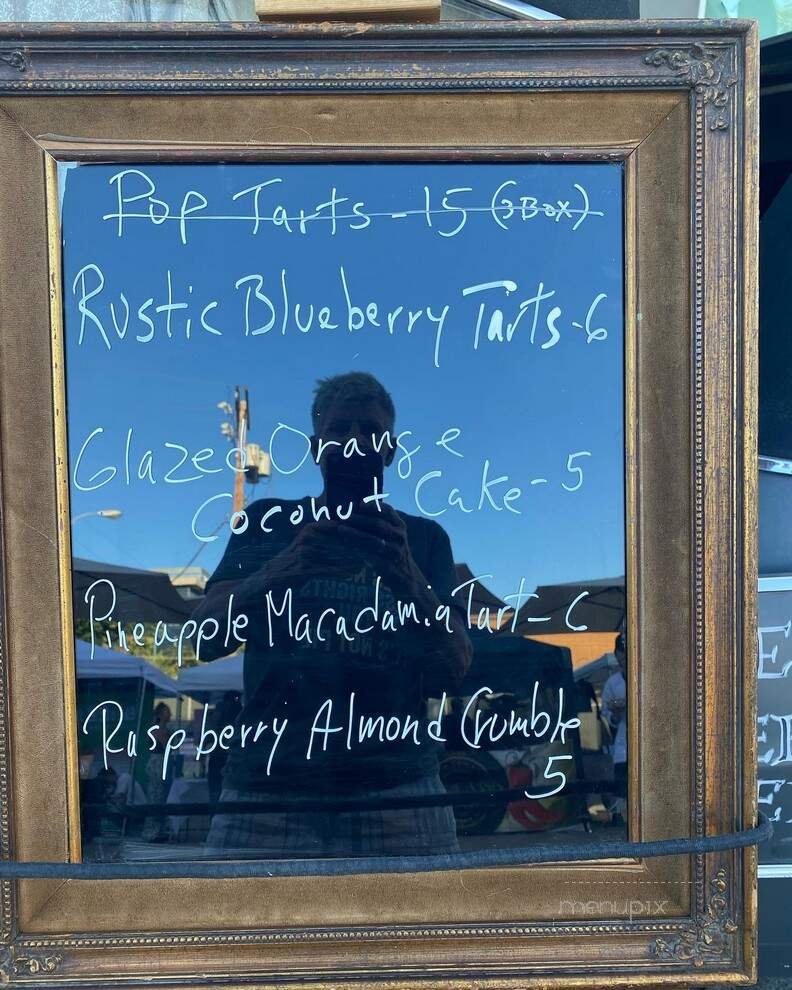 Pop Tarts - 15 (3 Box)
Rustic Blueberry Tarts - 6
Glazed Orange
Coconut Cake - 5
Pineapple Macadamia Tart - 6
Raspberry Almond Crumble
5
menupix